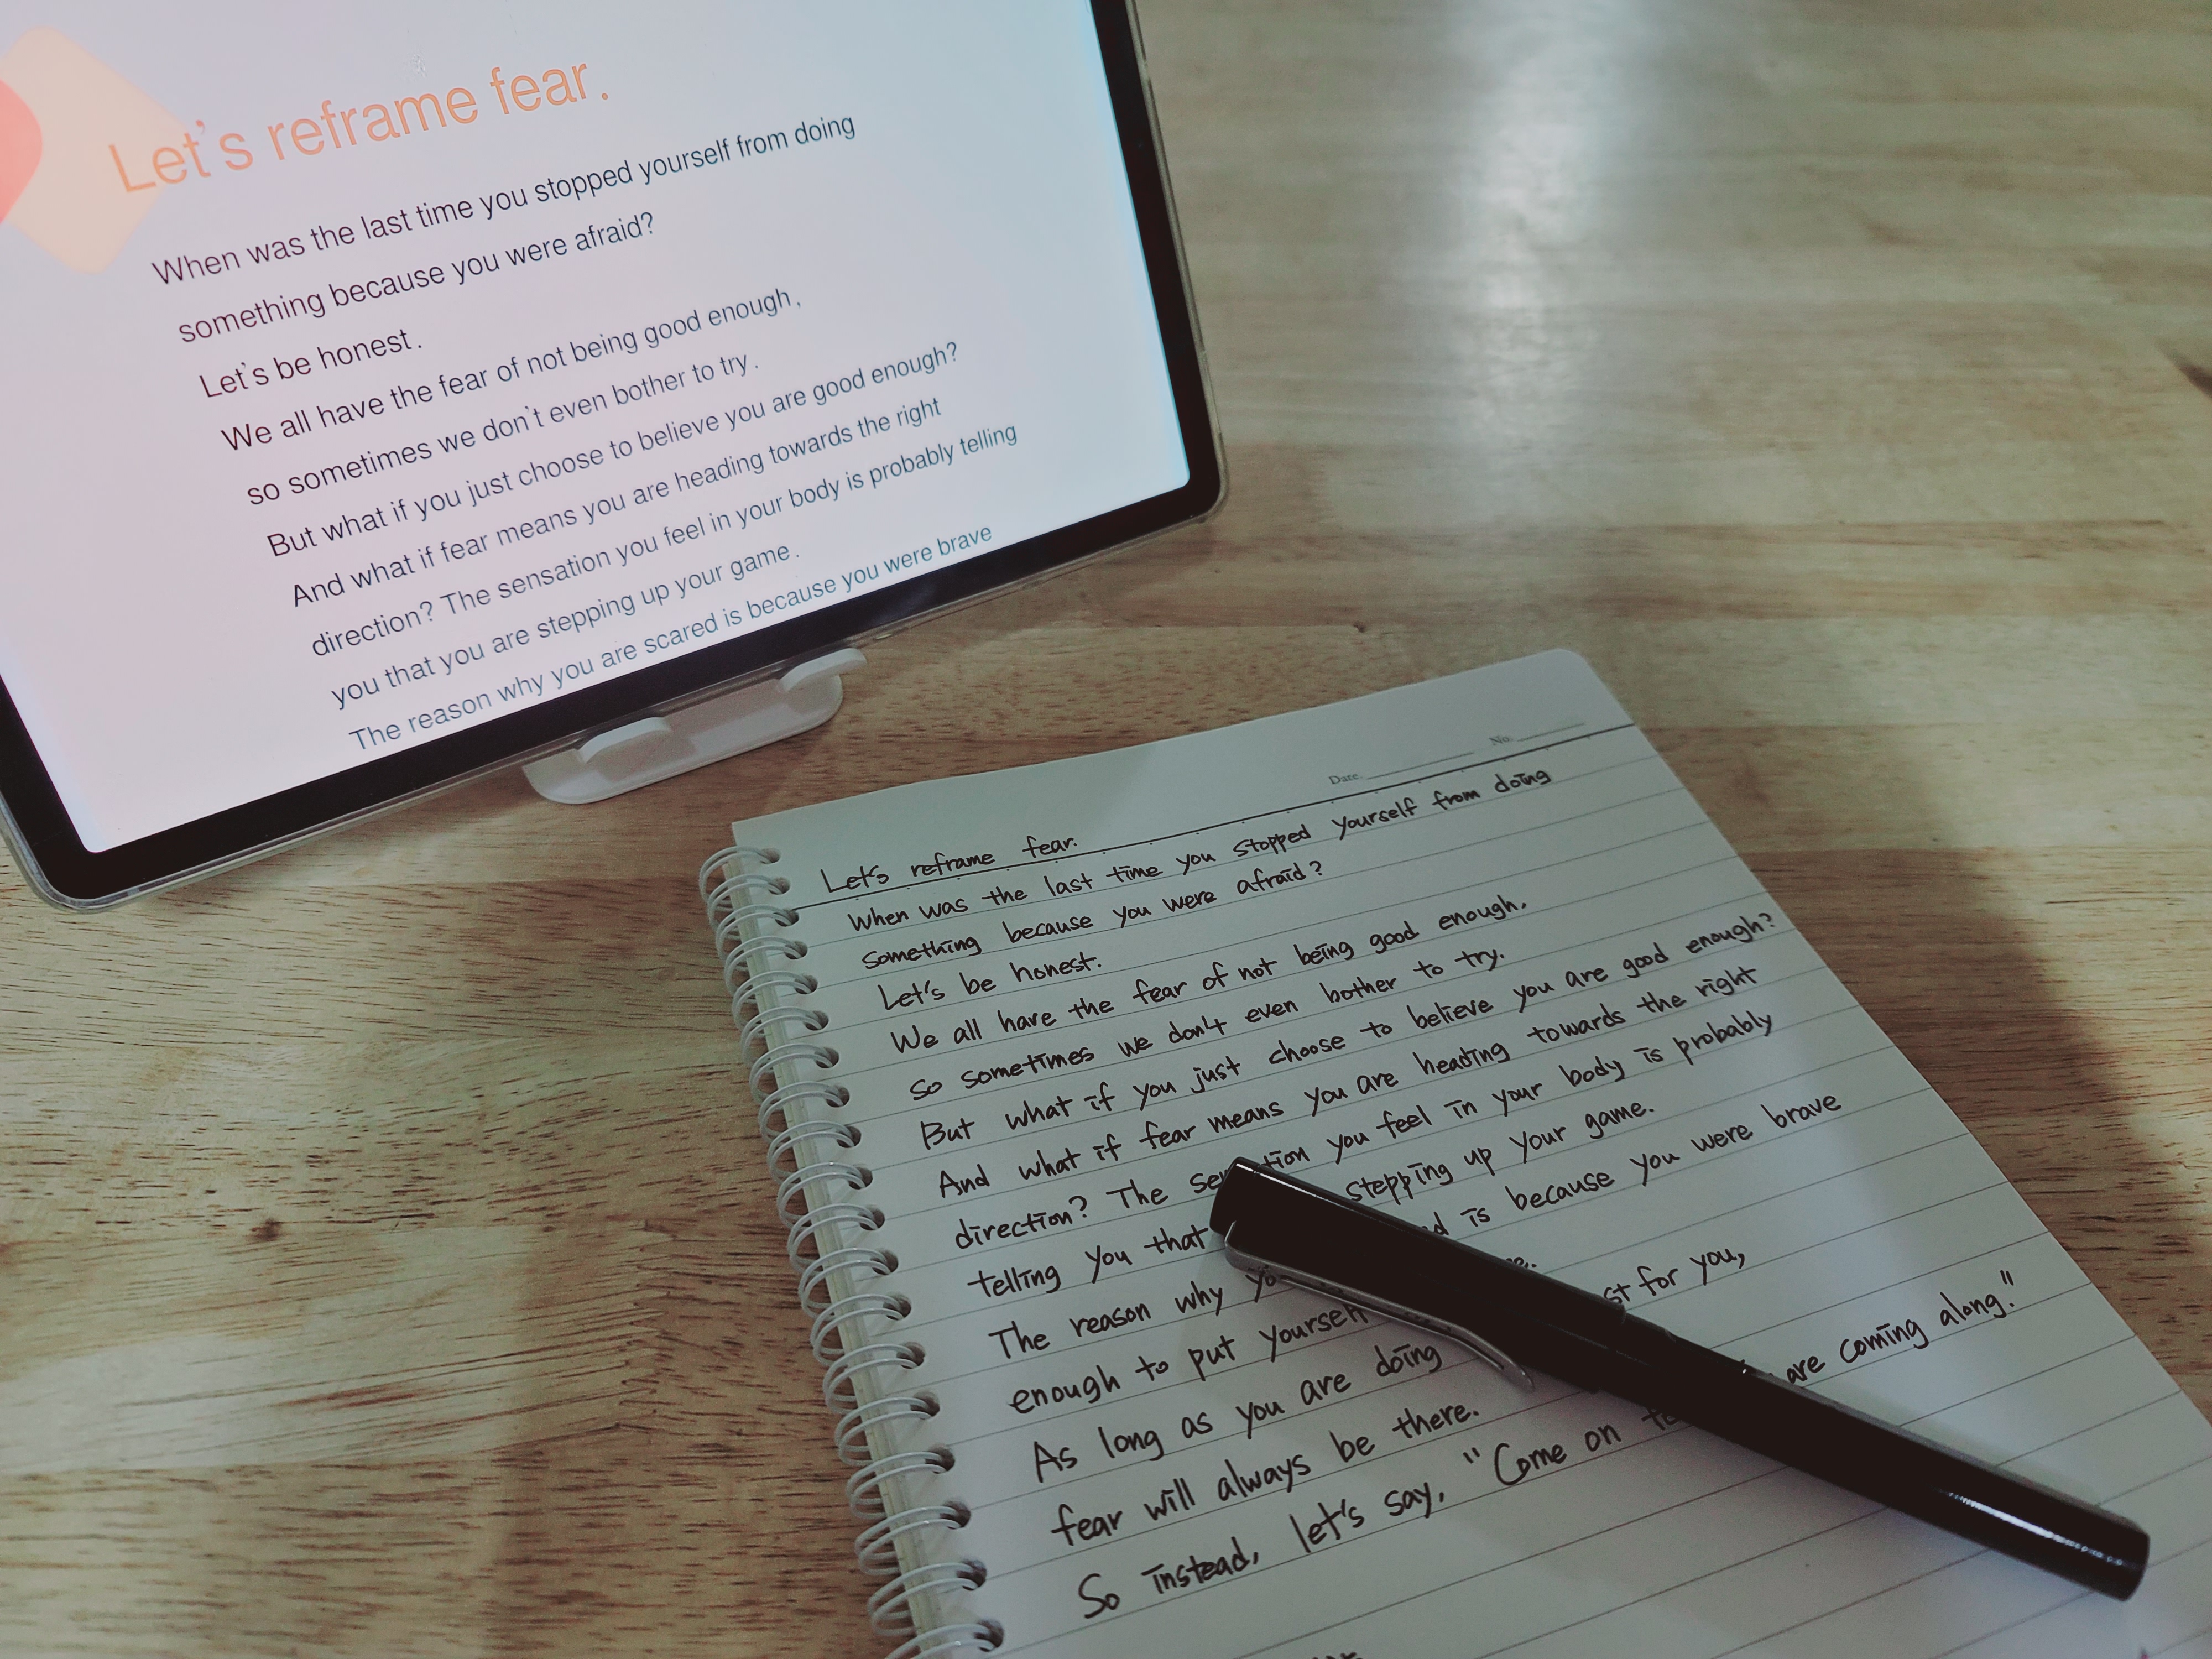 Let's reframe fear.
When was the last time you stopped yourself from doing
something because you were afraid?
Let's be honest.
We all have the fear of not being good enough,
so sometimes we don't even bother to try.
But what if you just choose to believe you are good enough?
And what if fear means you are heading towards the right
direction? The sensation you feel in your body is probably telling
you that you are stepping up your game.
The reason why you are scared is because you were brave
Date. No.
Let's reframe fear.
When was the last time you stopped yourself from doing
something because you were afraid?
Let's be honest.
We all have the fear of not being good enough,
so sometimes we don't even bother to try.
But what if you just choose to believe you are good enough?
And what if fear means you are heading towards the right
direction? The you feel in your body is probably
telling you that stepping up your game.
The reason why is because you were brave
enough to put yourself
As long as you are doing for you,
fear will always be there.
So instead, let's say, "Come on are coming along."